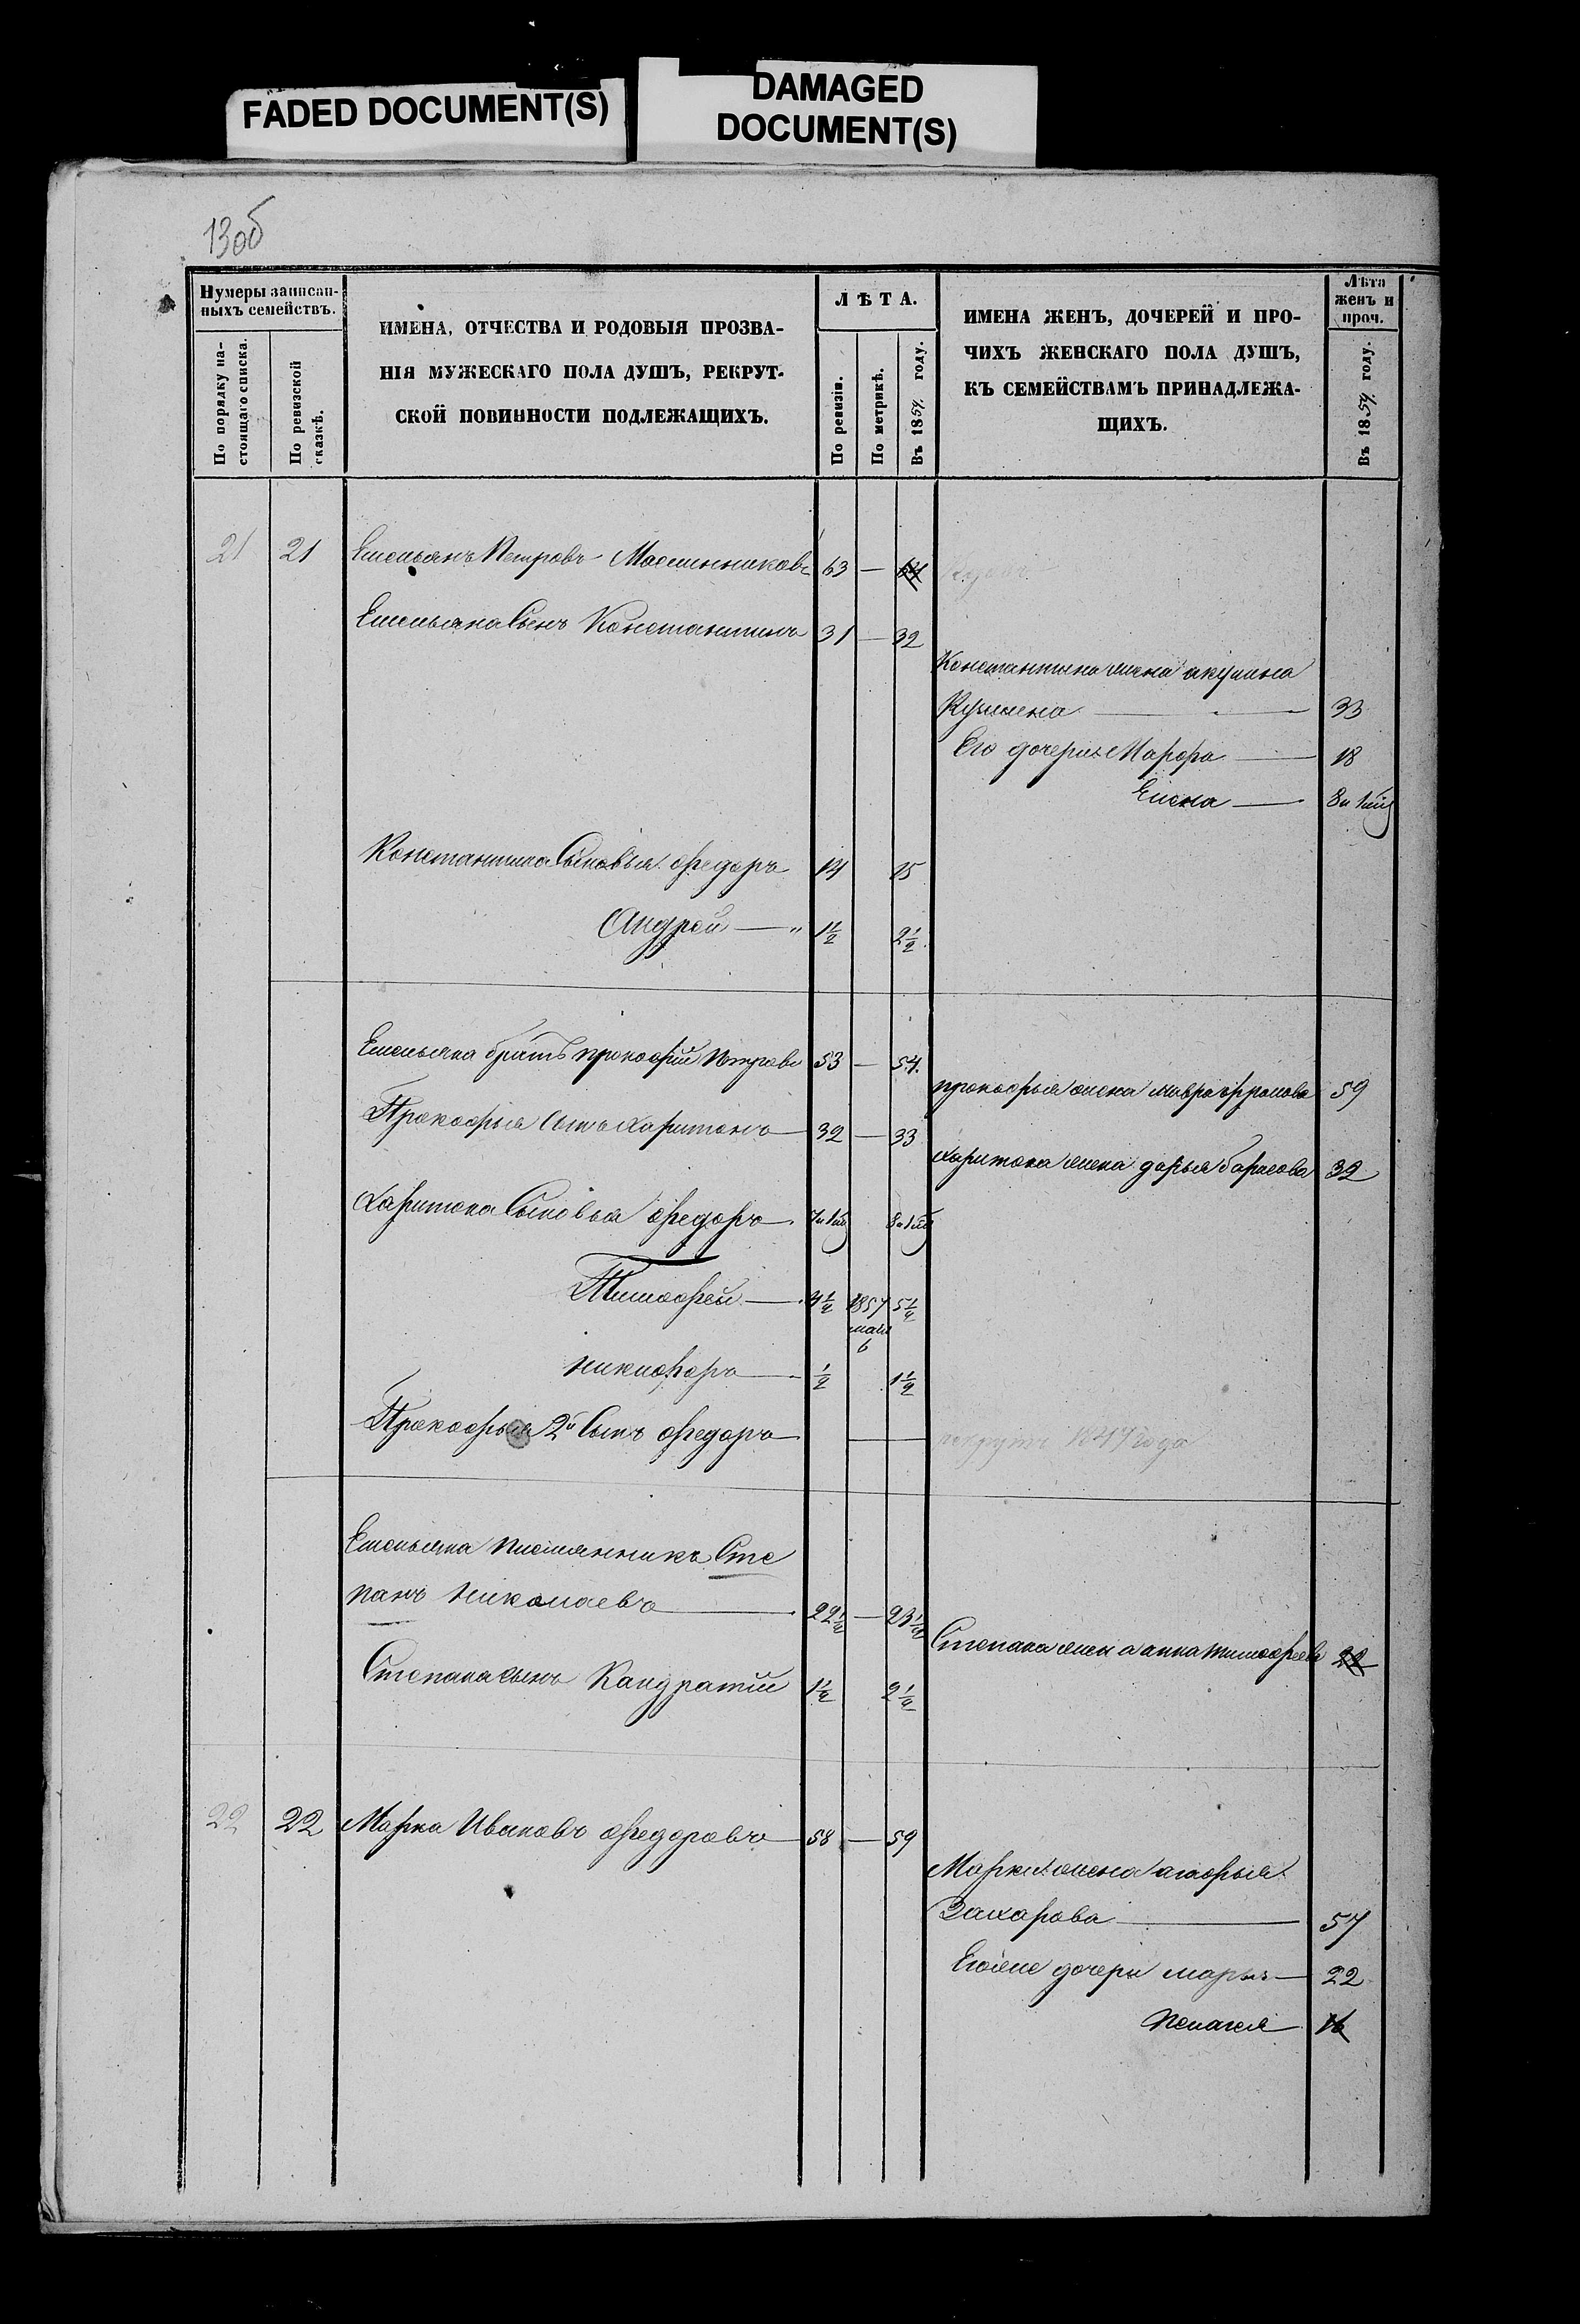 FADED DOCUMENT(S)
DAMAGED
DOCUMENT(S)
13об
Нумеры записан-
ныхъ семействъ.
По порядку на-
стоящаго списка.
По ревизской
сказкѣ.
ИМЕНА, ОТЧЕСТВА И РОДОВЫЯ ПРОЗВА-
НІЯ МУЖЕСКАГО ПОЛА ДУШЪ, РЕКРУТ-
СКОЙ ПОВИННОСТИ ПОДЛЕЖАЩИХЪ.
ЛѢТА.
По ревизіи.
По метрикѣ.
Въ 185 году.
ИМЕНА ЖЕНЪ, ДОЧЕРЕЙ И ПРО-
ЧИХЪ ЖЕНСКАГО ПОЛА ДУШЪ,
КЪ СЕМЕЙСТВАМЪ ПРИНАДЛЕЖА-
ЩИХЪ.
Лѣта
женъ и
проч.
Въ 185 году.
21 21 Емельянъ Петровъ Масленниковъ 63 — 64
Емельяна Сынъ Константинъ 31 — 32
Константина жена акулина
Кузмина — 33
Его дочери Марфа — 18
Елена — 8 и 1 мѣ
Константина Сыновья федоръ 14 15
Андрей — " 1 1/2 2 1/2
Емельяна братъ прокофий Петровъ 53 — 54
прокофья жена мавра 59
Прокофья Сынъ Харитонъ — 32 — 33
харитона жена дарья борисова 32
Харитона Сыновья федоръ — 7 и 1 мѣ 8 и 1 мѣ
Тимофей — 4 1/2 1857 5 1/2
мая
6
никифоръ — 1/2 1 1/2
Прокофья 2й Сынъ федоръ —
рекрутъ 1847 года
Емельяна племянникъ Сте
панъ Николаевъ — 22 1/2 — 23 1/2
Степана жена анна тимофеева 22
Степана сынъ Кандратий 1 1/2 2 1/2
22 22 Марка Ивановъ федоровъ — 58 — 59
Марки жена агафья
Захарова — 57
Егоже дочери марья — 22
Пелагея — 16